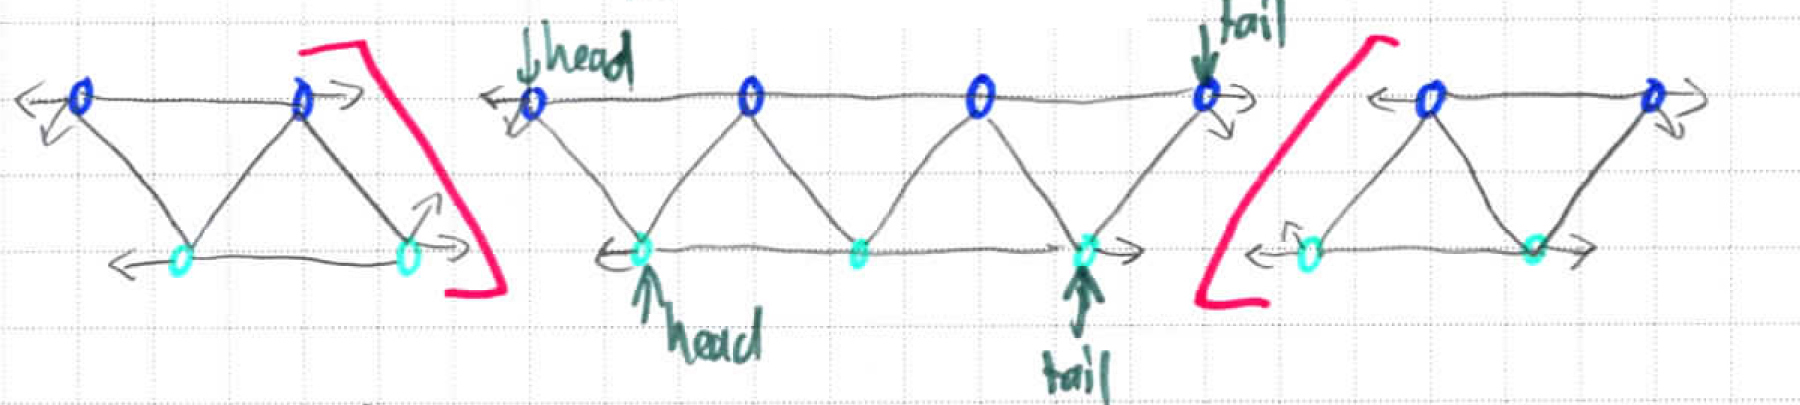 head
tail
head
tail